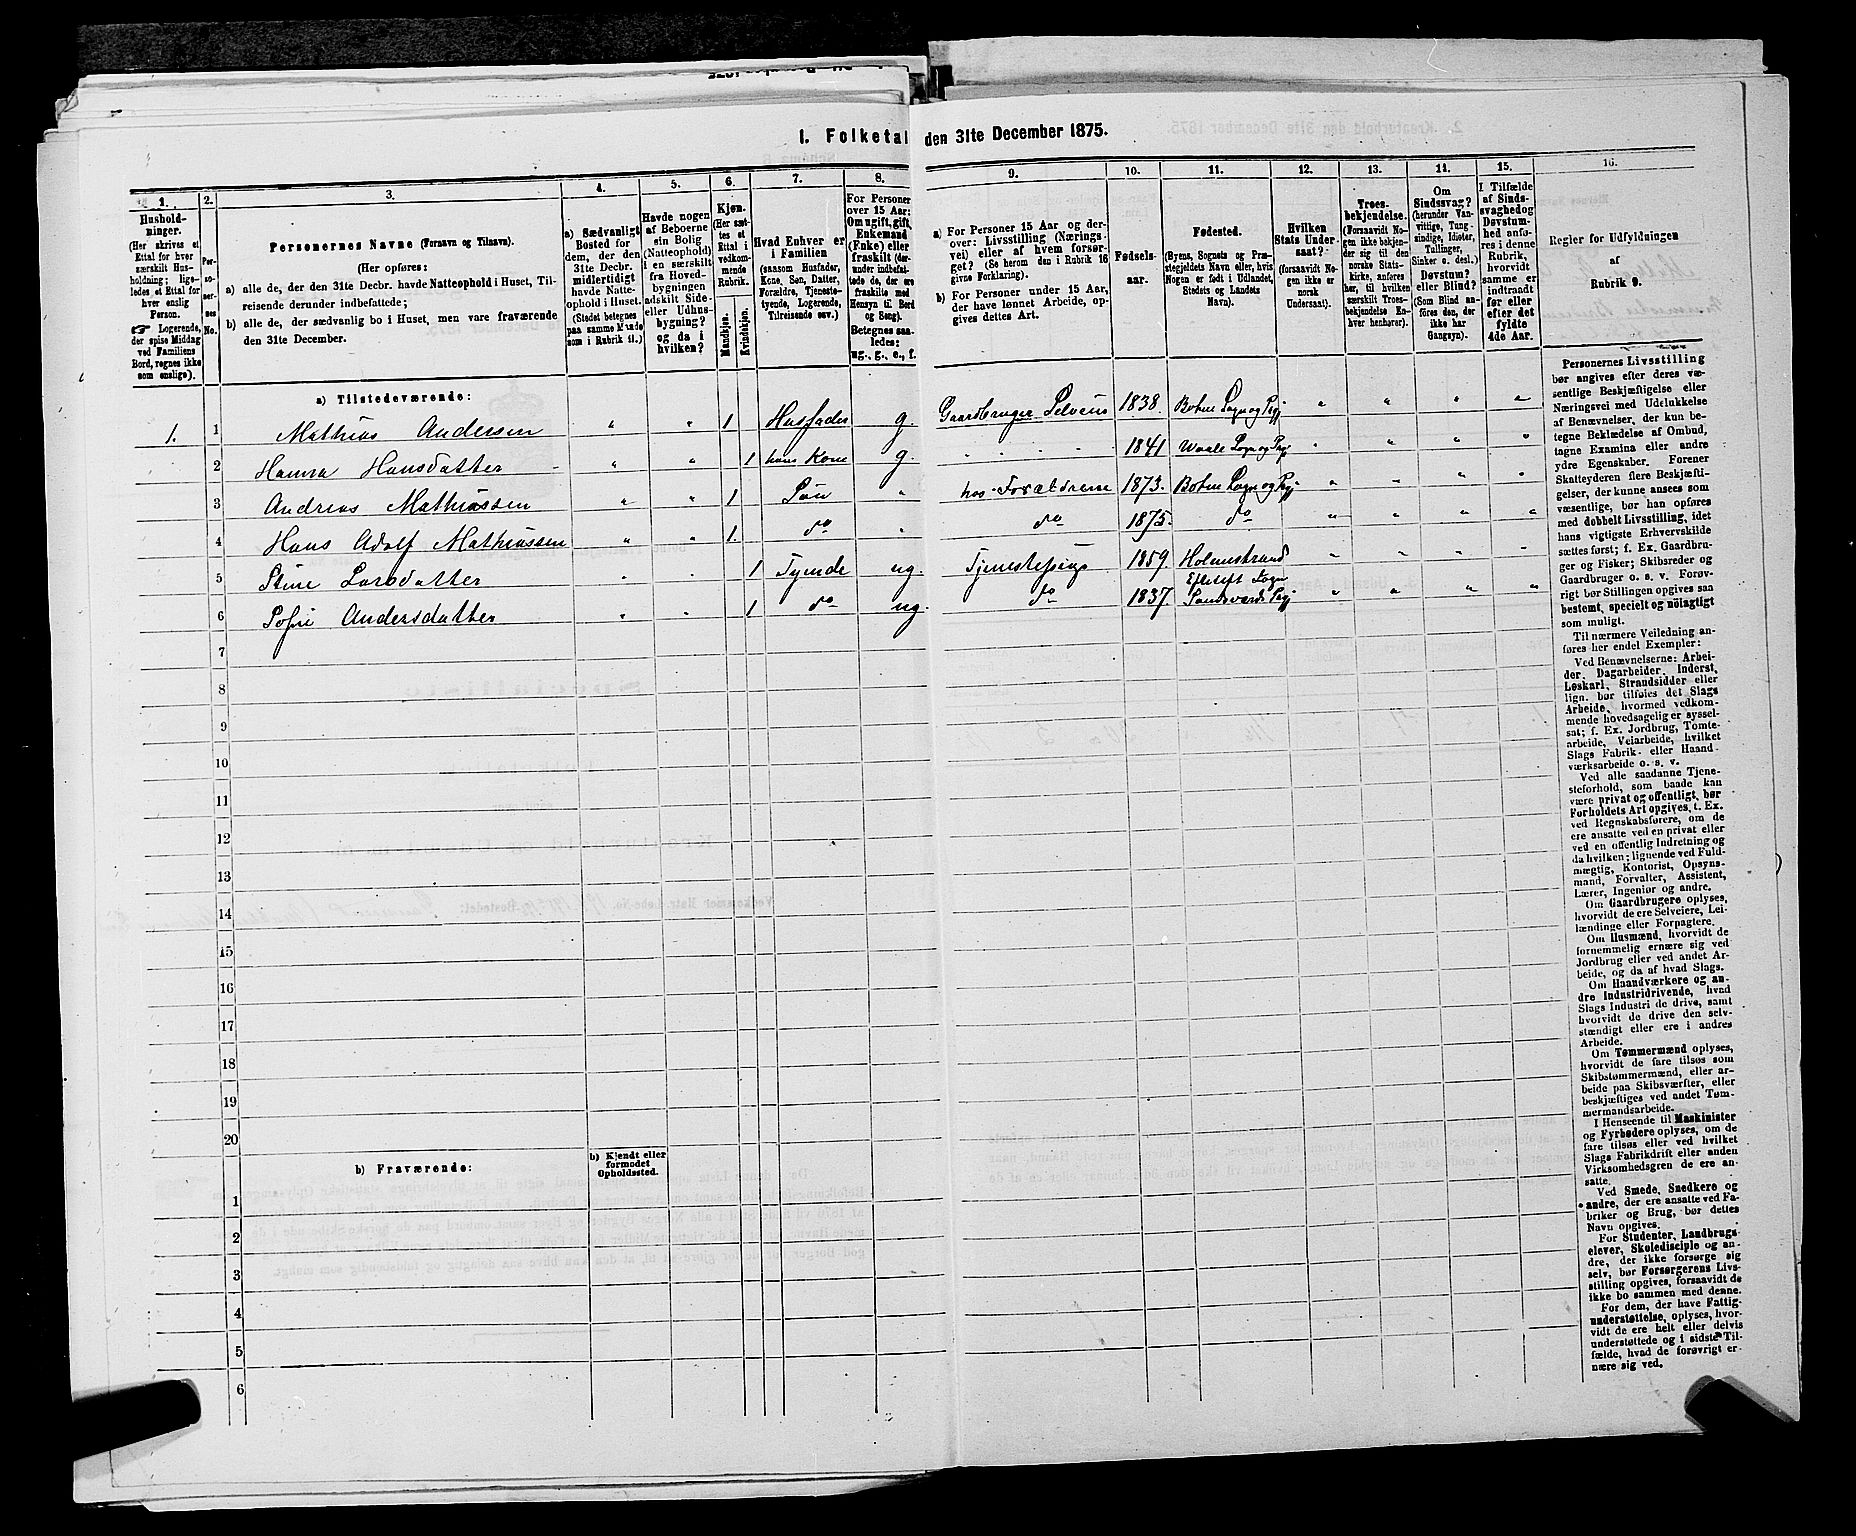 1. Folketal den 31te December 1875.
1.
Hushold-
ninger.
(Her skrives et
Ettal for hver
særskilt Hus-
holdning; lige-
ledes et Ettal for
hver enslig
Person.
Logerende,
der spise Middag
ved Familiens
Bord, regnes ikke
som enslige).
2.
Per-
so-
ner-
nes
No.
3.
Personernes Navne (Fornavn og Tilnavn).
(Her opføres:
a) alle de, der den 31te Decbr. havde Natteophold i Huset, Til-
reisende derunder indbefattede;
b) alle de, der sædvanlig bo i Huset, men vare fraværende
den 31te December.
4.
a) Sædvanligt
Bosted for
dem, der den
31te Decbr.
midlertidigt
havde Natte-
ophold i Huset.
(Stedet betegnes
paa samme Maade
som i Rubrik 11.)
5.
Havde nogen
af Beboerne
sin Bolig
(Natteophold)
i en særskilt
fra Hoved-
bygningen
adskilt Side-
eller Udhus-
bygning?
og da i
hvilken?
6.
Kjøn.
(Her sæt-
tes et
Ettal i
vedkom-
mende
Rubrik.
Mandkjøn.
Kvindekjøn.
7.
Hvad Enhver er
i Familien
(saasom Husfader,
Kone, Søn, Datter,
Forældre, Tjeneste-
tyende, Logerende,
Tilreisende osv.)
8.
For Personer
over 15 Aar:
Om ugift, gift,
Enkemand
(Enke) eller
fraskilt (der-
under indbefat-
tede de, der ere
fraskilte med
Hensyn til Bord
og Seng).
Betegnes saa-
ledes:
ug., g., e., f.
9.
a) For Personer 15 Aar og der-
over: Livsstilling (Nærings-
vei) eller af hvem forsør-
get? (Se herom den i Rubrik 16
givne Forklaring).
b) For Personer under 15 Aar,
der have lønnet Arbeide, op-
gives dettes Art.
10.
Fødsels-
aar.
11.
Fødested.
(Byens, Sognets og Præ-
stegjeldets Navn eller, hvis
Nogen er født i Udlandet,
Stedets og Landets
Navn).
12.
Hvilken
Stats Under-
saat?
(forsaavidt No-
gen ikke er
norsk
Undersaat).
13.
Troes-
bekjendelse.
(Forsaavidt No-
gen ikke bekjen-
der sig til den
norske Stats-
kirke, anføres
her, til hvilken
særskilt Troes-
bekjendelse En-
hver henhører).
14.
Om
Sindssvag?
(herunder Van-
vittige, Tung-
sindige, Idioter,
Tullinger,
Sinker o. desl.)
Døvstum?
eller Blind?
(Som Blind an-
føres den, der
ikke har
Gangsyn).
15.
I Tilfælde
af Sinds-
svaghed og
Døvstum-
hed anfø-
res i denne
Rubrik,
hvorvidt
samme er
indtraadt
før eller
efter det
fyldte
4de Aar.
16.
Regler for Udfyldningen
af
Rubrik 9.
a) Tilstedeværende:
1. 1 Mathias Andersen " " 1 Husfader g. Gaardbruger Selveier 1838. Botne Sogn og Pgj " " " "
2 Hanna Hansdatter " " 1 hans Kone g. " " " " 1841 Waale Sogn og Pgj " " " "
3 Andreas Mathiassen " " 1 Søn " hos Forældrene 1873. Botne Sogn og Pgj " " " "
4 Hans Adolf Mathiassen " " 1. do " do 1875. do " " " "
5 Stine Larsdatter " " 1 Tyende ug. Tjenestepige 1859. Holmestrand " " " "
6 Sofie Andersdatter " " 1 do ug. do 1837. Efteløt Sogn Sandsværds Pgj " " " "
7
8
9
10
11
12
13
14
15
16
17
18
19
20
b) Fraværende:
b) Kjendt eller
formodet
Opholdssted.
1
2
3
4
5
6
Personernes Livsstilling
bør angives efter deres væ-
sentlige Beskjæftigelse eller
Næringsvei med Udelukkelse
af Benævnelser, der kun be-
tegne Beklædelse af Ombud,
tagne Examina eller andre
ydre Egenskaber. Forener
Skatteyderen flere Beskjæfti-
gelser, der kunne ansees som
væsentlige, bør han opføres
med dobbelt Livsstilling, idet
hans vigtigste Erhvervskilde
sættes først; f. Ex. Gaardbru-
ger og Fisker; Skibsreder og
Gaardbruger o. s. v. Forøv-
rigt bør Stillingen opgives saa
bestemt, specielt og nöiagtigt
som muligt.
Til nærmere Veiledning an-
føres her endel Exempler:
Ved Benævnelserne: Arbei-
der, Dagarbeider, Inderst,
Løskarl, Strandsidder eller
lign. bør tilføies det Slags
Arbeide, hvormed vedkom-
mende hovedsagelig er syssel-
sat; f. Ex. Jordbrug, Tomte-
arbeide, Veiarbeide, hvilket
Slags Fabrik- eller Haand-
værksarbeide o. s. v.
Ved alle saadanne Tjene-
steforhold, som baade kan
være privat og offentligt, bør
Forholdets Art opgives, t. Ex.
ved Regnskabsførere, om de
ere ansatte ved en privat eller
ved en offentlig Indretning og
da hvilken; lignende ved Fuld-
mægtig, Kontorist, Opsyns-
mand, Forvalter, Assistent,
Lærer, Ingeniør og andre.
Om Gaardbrugere oplyses,
hvorvidt de ere Selveiere, Lei-
lændinge eller Forpagtere.
Om Husmænd, hvorvidt de
fornemmelig ernære sig ved
Jordbrug eller ved andet Ar-
beide, og da af hvad Slags.
Om Haandværkere og an-
dre Industridrivende, hvad
Slags Industri de drive, samt
hvorvidt de drive den selv-
stændigt eller ere i andres
Arbeide.
Om Tømmermænd oplyses,
hvorvidt de fare tilsøs som
Skibstømmermænd, eller ar-
beide paa Skibsværfter, eller
beskjæftiges ved andet Tøm-
mermandsarbeide.
I Henseende til Maskinister
og Fyrbødere oplyses, om de
fare tilsøs eller ved hvilket
Slags Fabrikdrift eller anden
Virksomhedsgren de ere an-
satte.
Ved Smede, Snedkere og
andre, der ere ansatte ved Fa-
briker og Brug, bør dettes
Navn opgives.
For Studenter, Landbrugs-
elever, Skoledisciple og an-
dre, der ikke forsørge sig
selv, bør Forsørgerens Livs-
stilling opgives, forsaavidt de
ikke bo sammen med denne.
For dem, der have Fattig-
understøttelse, oplyses, hvor-
vidt de ere helt eller delvis
understøttede og i sidste Til-
fælde, hvad de forøvrigt er-
nære sig ved.